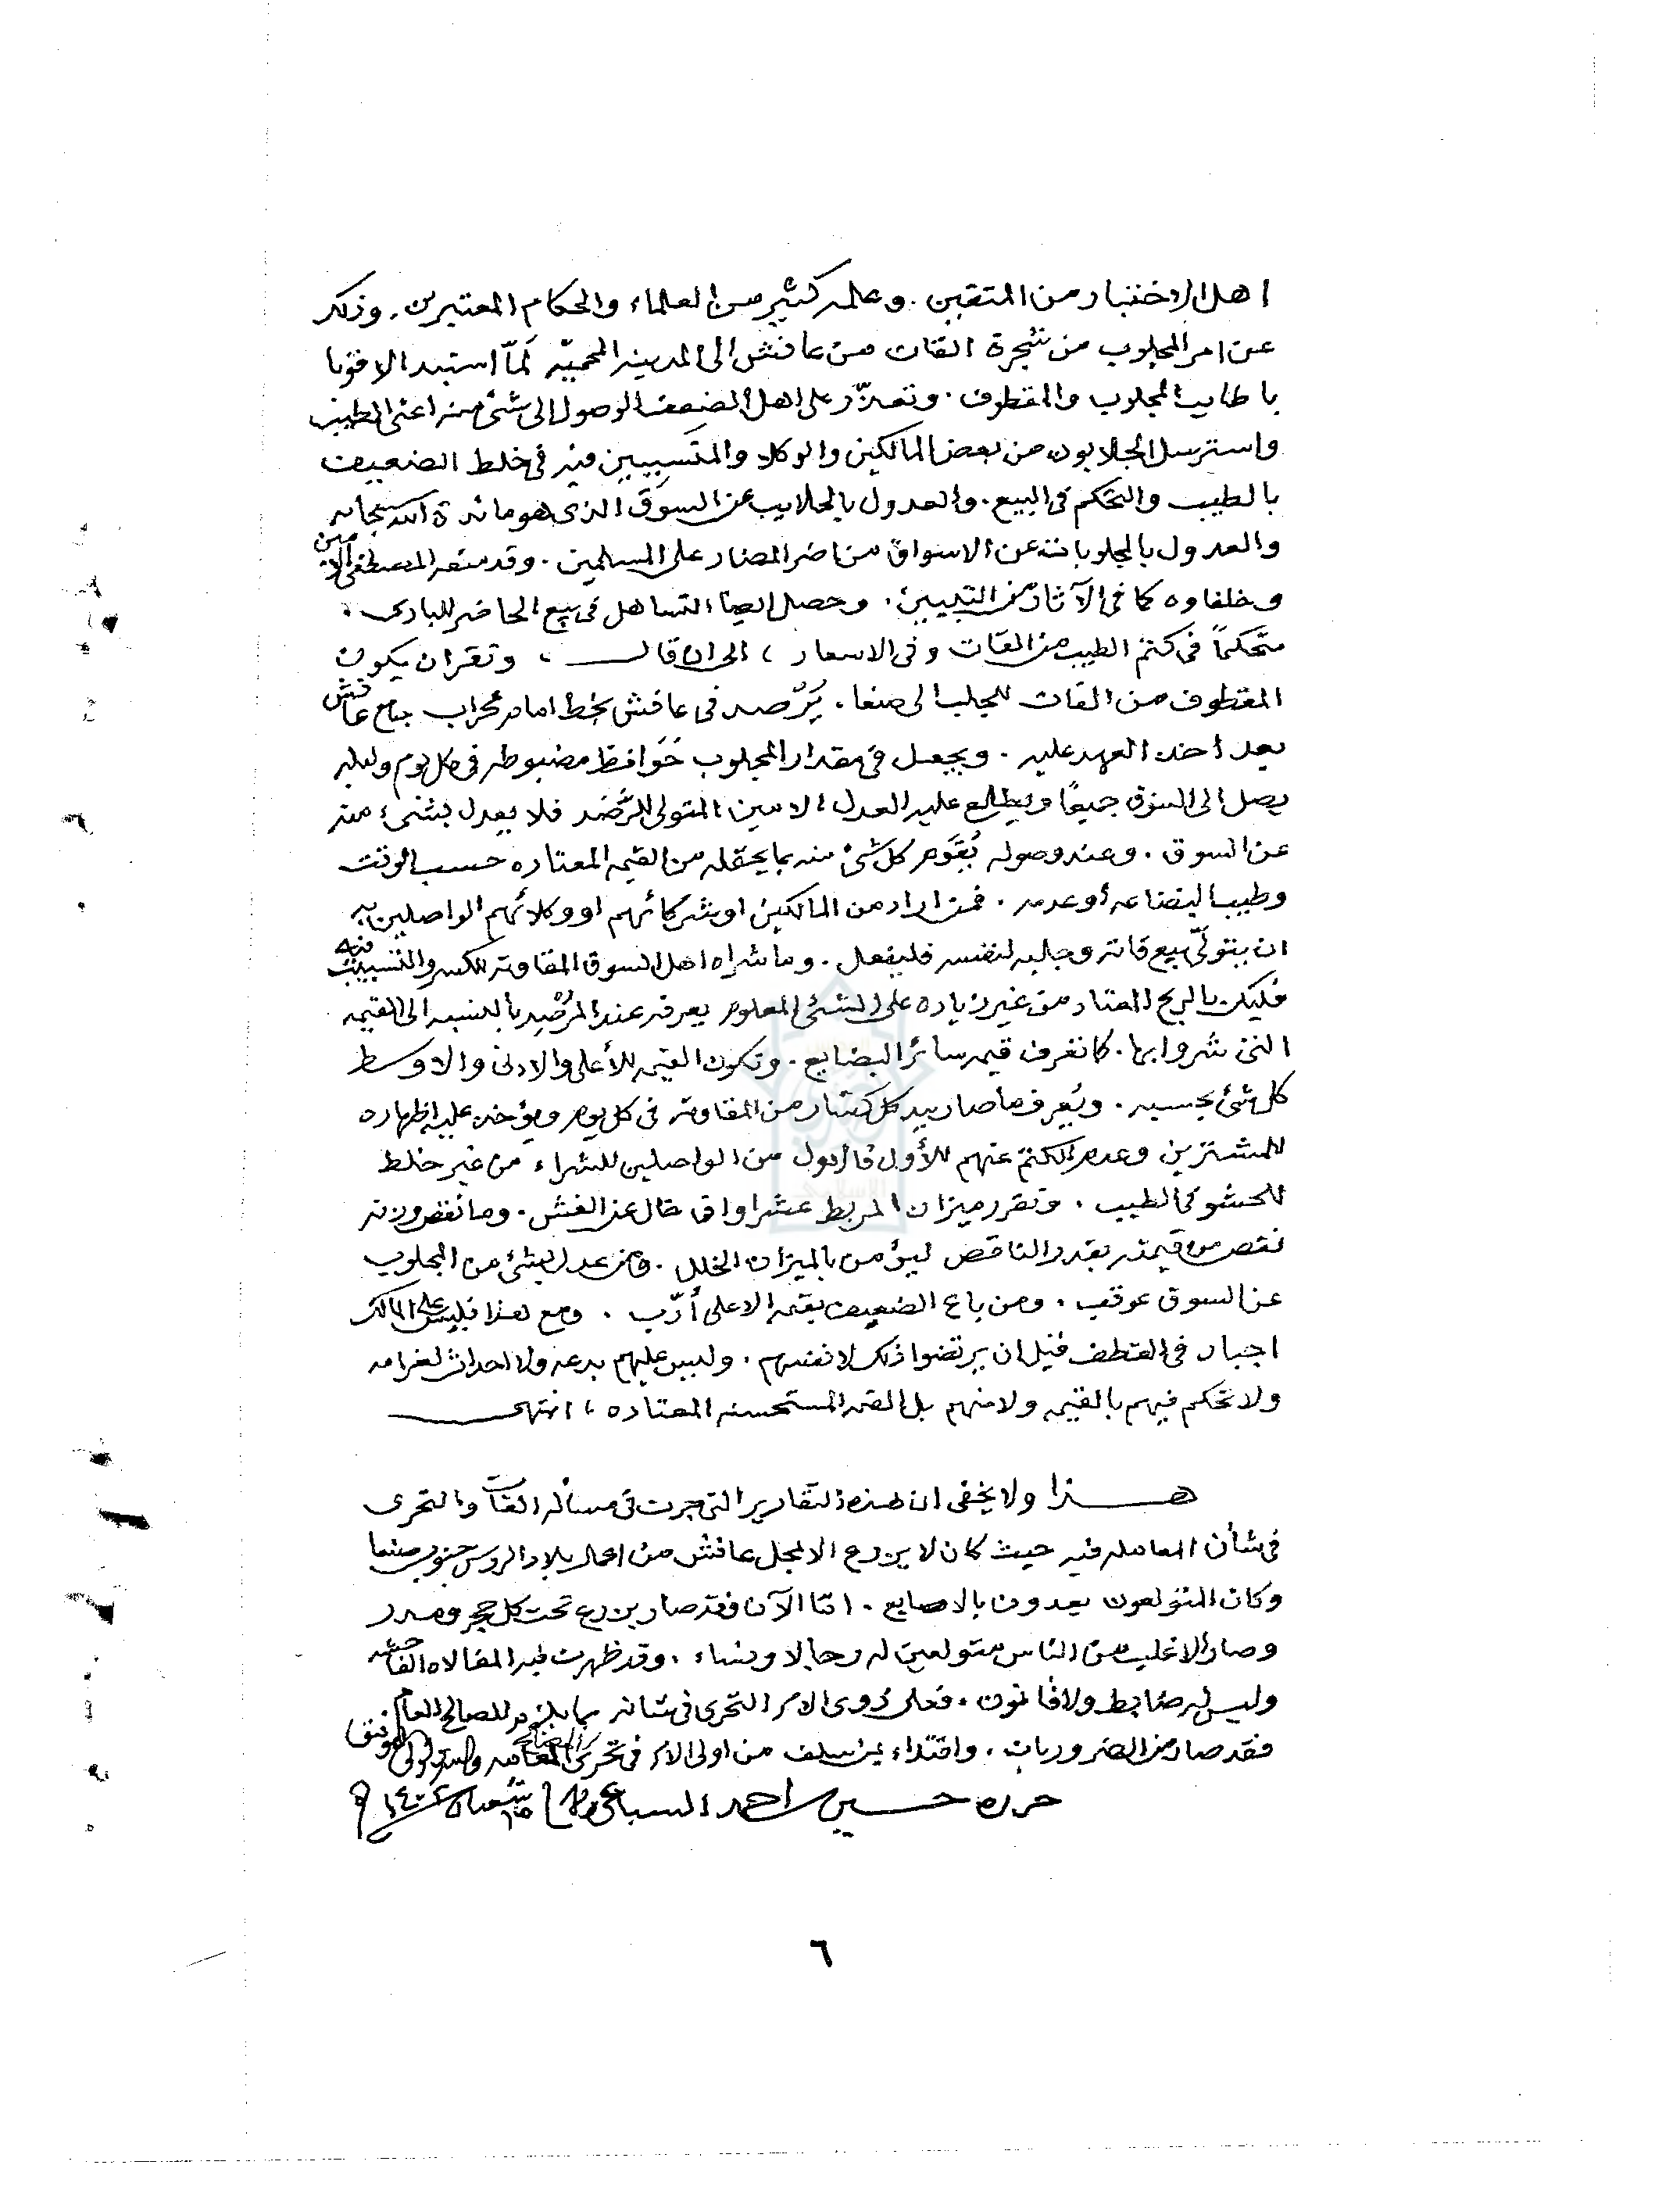 اهل الاختبار من المتقين. وعلمه كثير من العلماء والحكام المعتبرين. وذلك
عن امر المجلوب من شجرة القات من عافش الى المدينه المحميّه لمّا استبد الاقويا
باطايب المجلوب والمقطوف. وتعذّر على اهل الضعف الوصول الى شئ منه اعنى الطيب
واسترسل الجلابون من بعض المالكين والوكلاء والمتسببين فيه فى خلط الضعيف
بالطيب والتحكم فى البيع. والعدول بالجلايب عن السوق الذى هو مائدة الله سبحانه
والعدول بالمجلوبات عن الاسواق من اضر المضار على المسلمين. وقد منعه المصطفى الامين
وخلفاوه كما فى الآثار من التبيين. وحصل ايضا التساهل فى بيع الحاضر للبادى.
متحكماً فى كتم الطيب من القات وفى الاسعار، الى ان قال، وتقرر ان يكون
المقطوف من القات للجلب الى صنعا. يُرّصد فى عافش بخط امام محراب جامع عافش
بعد اخذ العهد عليه. ويجعل فى مقدار المجلوب حَوَافظ مضبوطه فى كل يوم وليله
يصل الى السوق جميعًا ويطالع عليه العدل الامين المتولى للرَّصد فلا يعدل بشئ منه
عن السوق. وعند وصوله يُقَوَم كل شئ منه بما يحتمله من القيمه المعتاده حسب الوقت
وطيب البضاعه أو عدمه. فمن اراد من المالكين او شركائهم او وكلائهم الواصلين به
ان يتولّى بيع قاته وجلبه لنفسه فليفعل. وما شراه اهل السوق المقاوته للكسر والتسبب فيه
فليكن بالربح المعتاد من غير زياده على الشئ المعلوم يعرفه عند المُرْصِد بالنسبه الى القيمه
التى شروا بها. كما تعرف قيمه سائر البضايع. وتكون القيمه للأعلى والادنى والاوسط
كل شئ بحسبه. ويُعرف ما صار بيد كل كسّار من المقاوته فى كل يوم ويؤخذ عليه اظهاره
للمشترين وعدم الكتم عنهم للأول فالاول من الواصلين للشراء من غير خلط
للحشو فى الطيب. وتقرر ميزان المربط عشر اواق خال عن الغش. وما نقص وزنه
نقص من قيمته بقدر الناقص ليؤمن بالميزان الخلل. ومن عدل بشئ من المجلوب
عن السوق عوقب. ومن باع الضعيف بقيمه الاعلى أُدّب. ومع هذا فليس على المالك
اجبار فى القطف قبل ان يرتضوا ذلك لانفسهم. وليس عليهم بدعه ولا احداث لغرامه
ولا تحكم فيهم بالقيمه ولا منهم بل القيمه المستحسنه المعتاده، انتهى
هذا ولا يخفى ان هذه التقارير التى جرت فى مسأله القات والتحرى
فى شأن المعامله فيه حيث كان لا يزرع الا بمحل عافش من اعمال بلاد الروس جنوب صنعا
وكان المتولعون يعدون بالاصابع. امّا الآن فقد صار يزرع تحت كل حجر ومدر
وصار الاغلب من الناس متولعين له رجالا ونساء. وقد ظهرت فيه المغالاه الفاحشه
وليس له ضابط ولا قانون. فعلى ذوى الامر التحرى فى شانه بما يلزم للصالح العام
فقد صار من الضروريات. واقتداء بمن سلف من اولى الامر فى تحرى المصالح العامه والله ولى التوفيق
حرره حسين احمد السباغى شعبان ١٤٠٢
٦